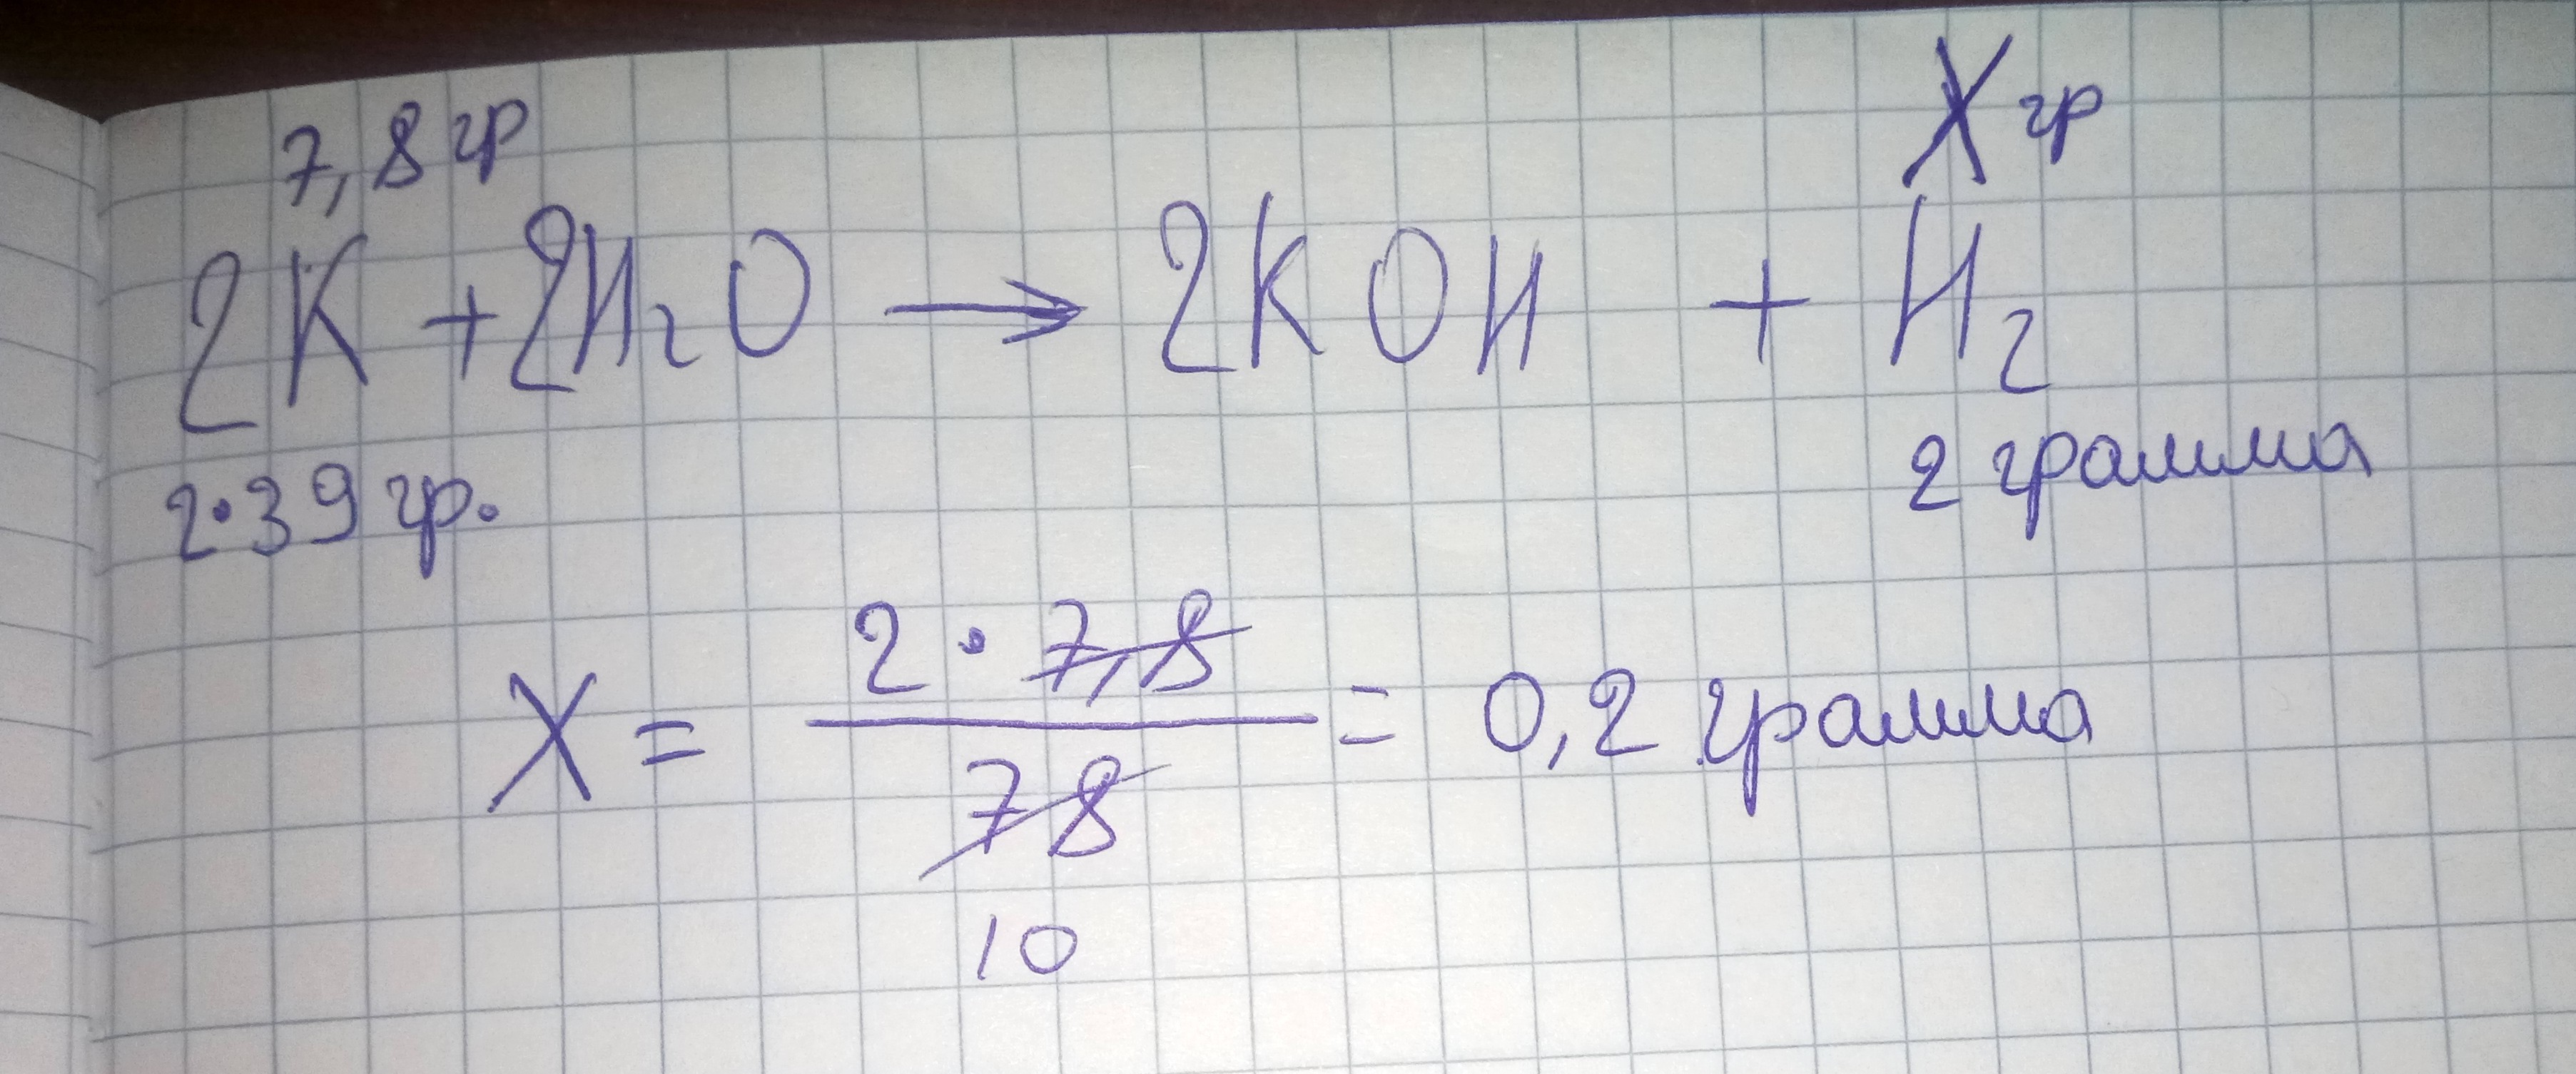 7,8 гр X гр
2K + 2H₂O → 2KOH + H₂
2·39 гр. 2 грамма
X = 2 · 7,8 / 78 = 0,2 грамма
10